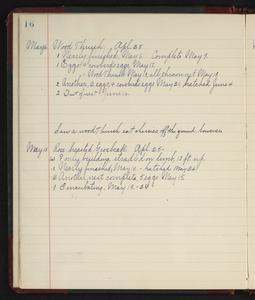 16
May 6 Wood Thrush Apl. 28
1 Nearly finished, May 6. Complete May 9.
1 Egg & cowbirds egg May 12.
1 Wood Thrush May 17, all thrown out May 19.
2 Another, 2 eggs & cowbirds egg May 29, hatched June 4
2 Out of nest June 14.
Saw a wood thrush eat cherries off the ground, however
May 10 Rose breasted Grosbeak Apl. 29.
only building, dead elm limb, 12 ft. up
1 Nearly finished, May 10 - hatched May 26
2 Another nest complete, 5 eggs May 15
1 incubating, May 19-24